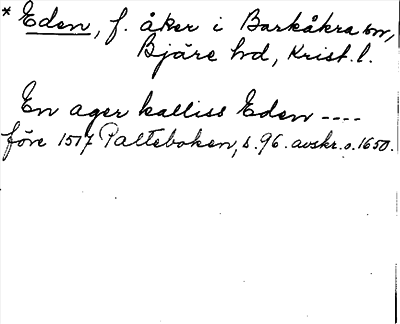 * Eden, f. åker i Barkåkra sn,
Bjäre hd, Krist. l.
En ager kalliss Eden ----
före 1517 Palteboken, s. 96. avskr. o. 1650.